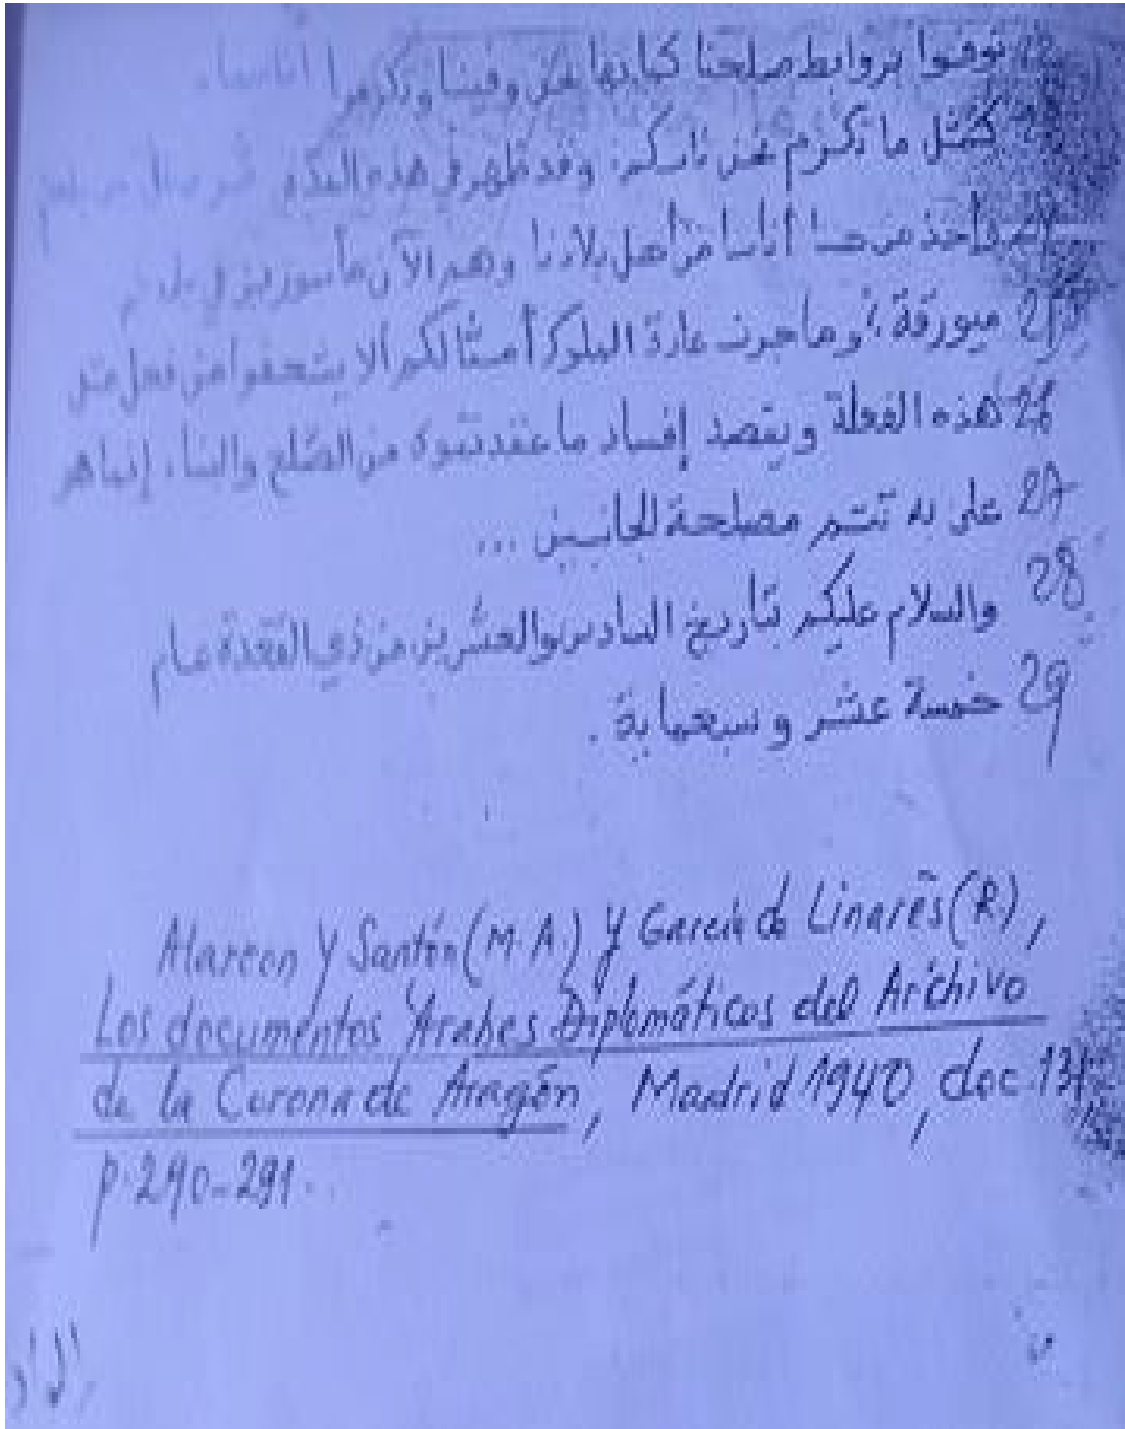 توفوا بروابط صلحنا كما بها نحن وفينا وتكرموا أناسنا،
كمثل ما نكرم نحن ناسكم. وقد ظهر في هذه
أناسا من أهل بلادنا وهم الآن مأسورين في
25 ميورقة؛ وما جرت عادة الملوك أمثالكم ألا ينتصفوا من فعل مثل
26 هذه الفعلة ويقصد إفساد ما عقدتموه من الصلح والبنا،
27 على به تتم مصلحة للجانبين ...
28 والسلام عليكم بتأريخ السادس والعشرين من ذي القعدة عام
29 خمسة عشر وسبعماية.
Alarcon Y Santón (M.A.) Y García de Linares (R.),
Los documentos Árabes Diplomáticos del Archivo
de la Corona de Aragón, Madrid 1940, doc.
p.290-291.